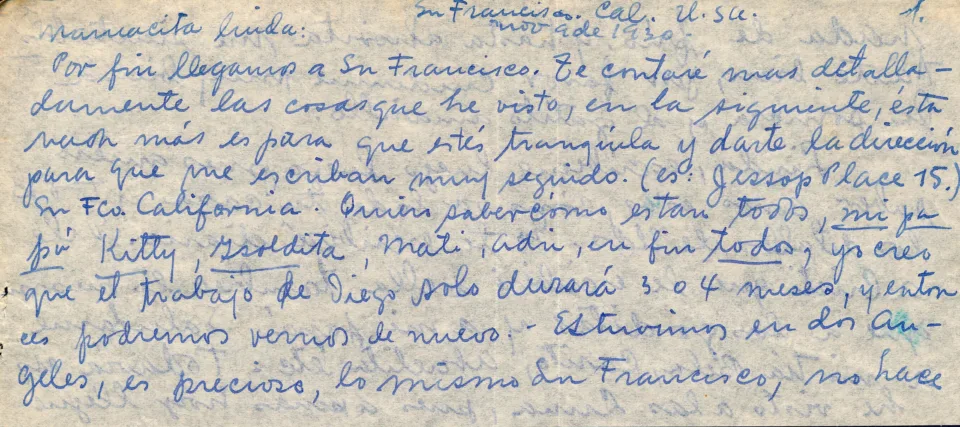 Sn Francisco. Cal. U.S.A. 1.
mamacita linda: nov 9 de 1930.
Por fin llegamos a Sn Francisco. Te contaré mas detalla-
damente las cosas que he visto, en la siguiente, ésta
nada más es para que estés tranquila y darte la dirección
para que me escriban muy seguido. (es: Jessop Place 15.)
Sn Fco. California. Quien sabe cómo estan todos, mi pa
pá Kitty, Isoldita, Mati, Adri, en fin todos, yo creo
que el trabajo de Diego solo durará 3 o 4 meses, y enton
ces podremos vernos de nuevo. - Estuvimos en Los An-
geles, es precioso, lo mismo Sn Francisco, no hace